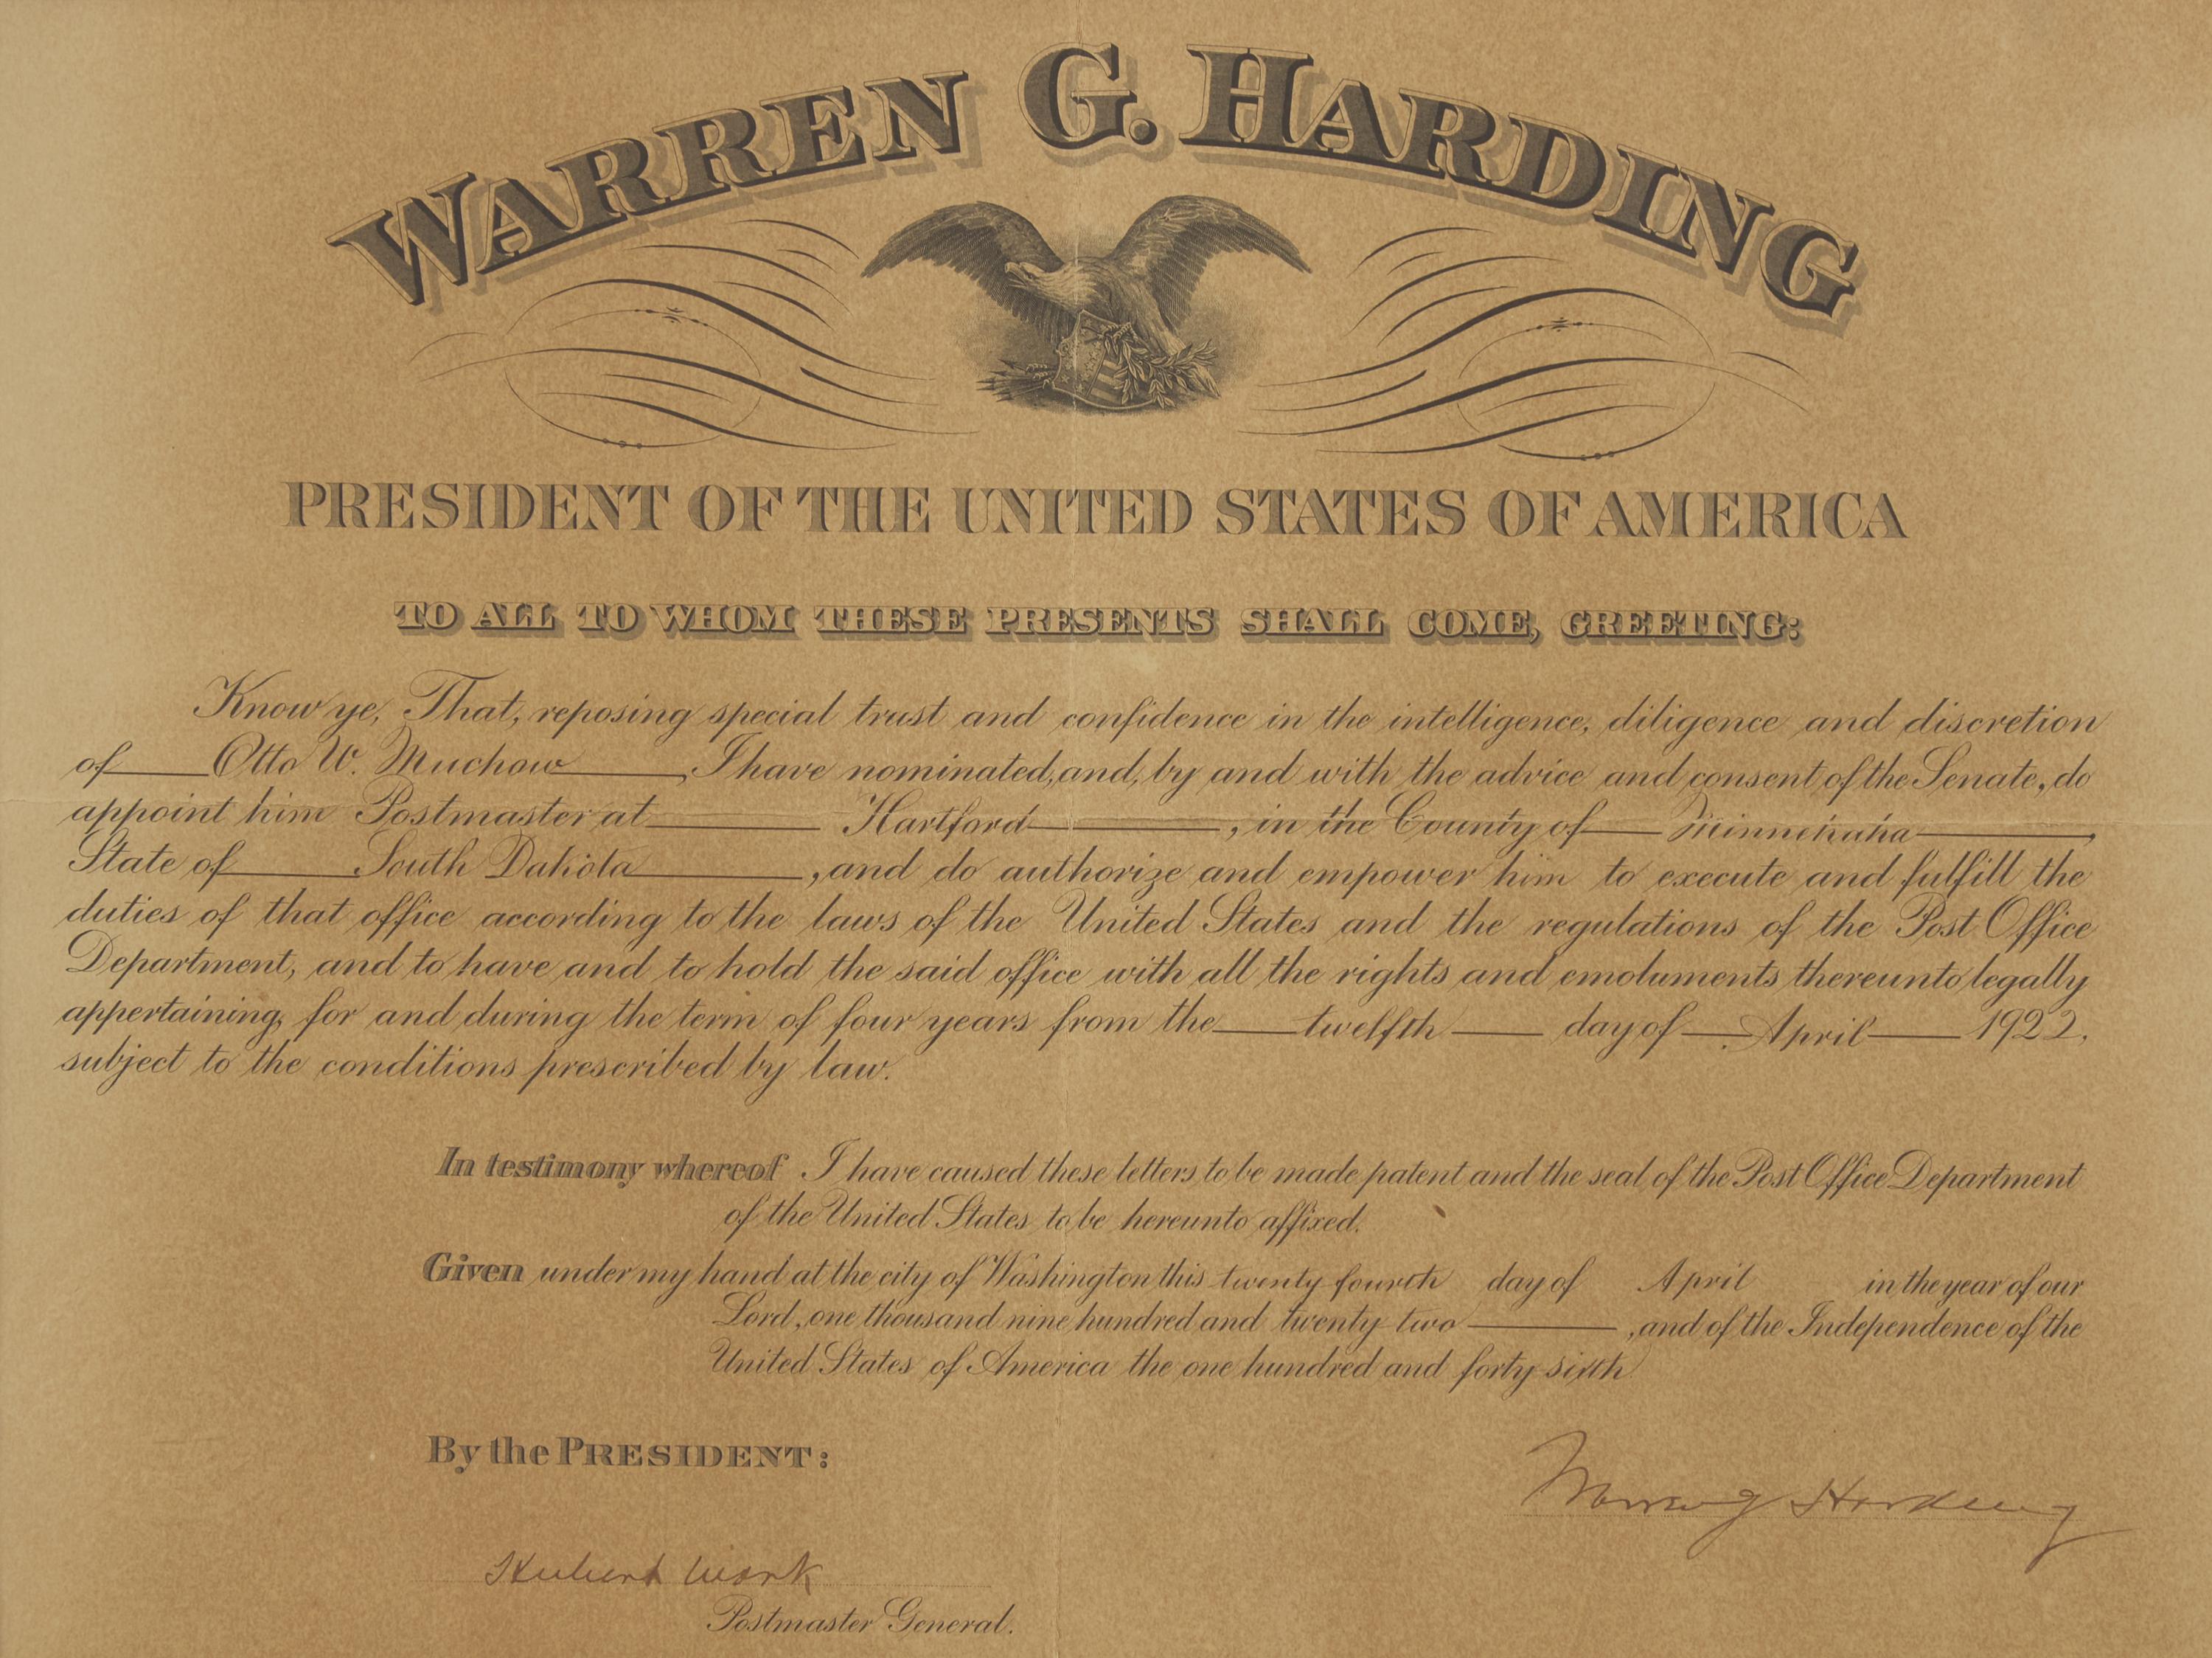 WARREN G. HARDING
PRESIDENT OF THE UNITED STATES OF AMERICA
TO ALL TO WHOM THESE PRESENTS SHALL COME, GREETING:
Know ye, That, reposing special trust and confidence in the intelligence, diligence and discretion
of Otto W. Muchow, I have nominated, and, by and with the advice and consent of the Senate, do
appoint him Postmaster at Hartford, in the County of Minnehaha,
State of South Dakota, and do authorize and empower him to execute and fulfill the
duties of that office according to the laws of the United States and the regulations of the Post Office
Department, and to have and to hold the said office with all the rights and emoluments thereunto legally
appertaining, for and during the term of four years from the twelfth day of April 1922,
subject to the conditions prescribed by law.
In testimony whereof I have caused these letters to be made patent and the seal of the Post Office Department
of the United States to be hereunto affixed.
Given under my hand at the city of Washington this twenty fourth day of April in the year of our
Lord, one thousand nine hundred and twenty two, and of the Independence of the
United States of America the one hundred and forty-sixth
By the PRESIDENT:
Warren G Harding
Hubert Work
Postmaster General.